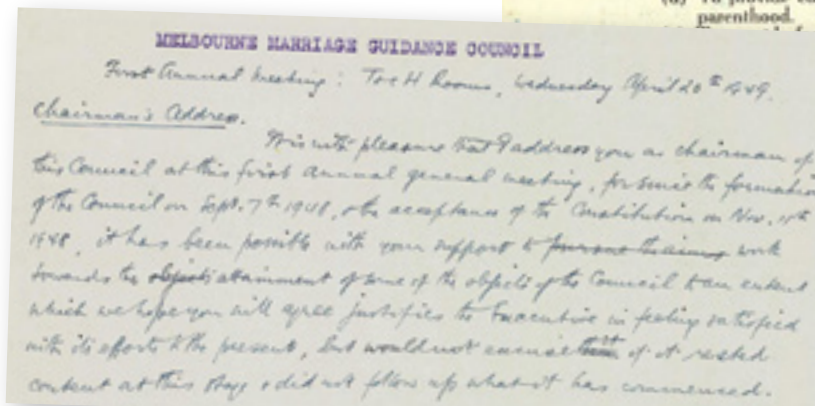 parenthood.
MELBOURNE MARRIAGE GUIDANCE COUNCIL
First Annual Meeting: Toc H Rooms, Wednesday April 20th 1949.
Chairman's Address.
It is with pleasure that I address you as chairman of
this Council at this first annual general meeting, for since the formation
of the Council on Sept. 7th 1948, & the acceptance of the Constitution on Nov.
1948, it has been possible with your support to pursue the aims work
towards the objects attainment of some of the objects of the Council to an extent
which we hope you will agree justifies the Executive in feeling satisfied
with its efforts to the present, but would not excuse if it rested
content at this stage & did not follow up what it has commenced.